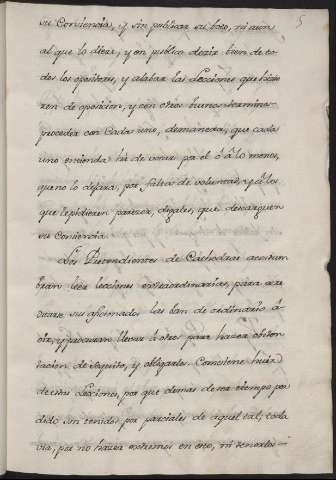 5
su Conciencia, y sin publicar su boto, ni aun
al que lo diere, y en publico decir bien de to-
dos los opositores, y alabar las Lecciones que hicie-
ren de oposicion, y con otros buenos terminos
proceder con Cada uno, de manera, que cada
uno entienda ha de votar por el ó á lo menos,
que no lo dejará, por falta de voluntad, y á los
que le pidieren parecer, digales, que descarguen
su Conciencia.
Los Pretendientes de Cathedras acostum-
bran leer lecciones extraordinarias, para
sus aficionados las han de ordinario á
oir, y procuran llevar á otros para hacer obsten-
tacion de séquito, y obligarles. Combiene huir
de estas Lecciones, por que demas de ser tiempo per-
dido son tenidos por parciales de aquel tal, toda
via, por no hacer extremos en esto, ni